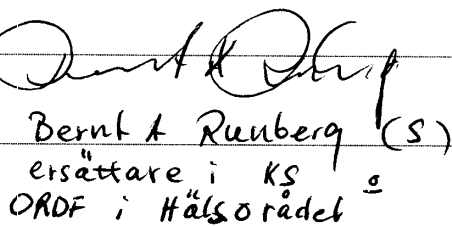 Bernt A Runberg (S)
ersättare i KS o
ORDF i Hälsorådet